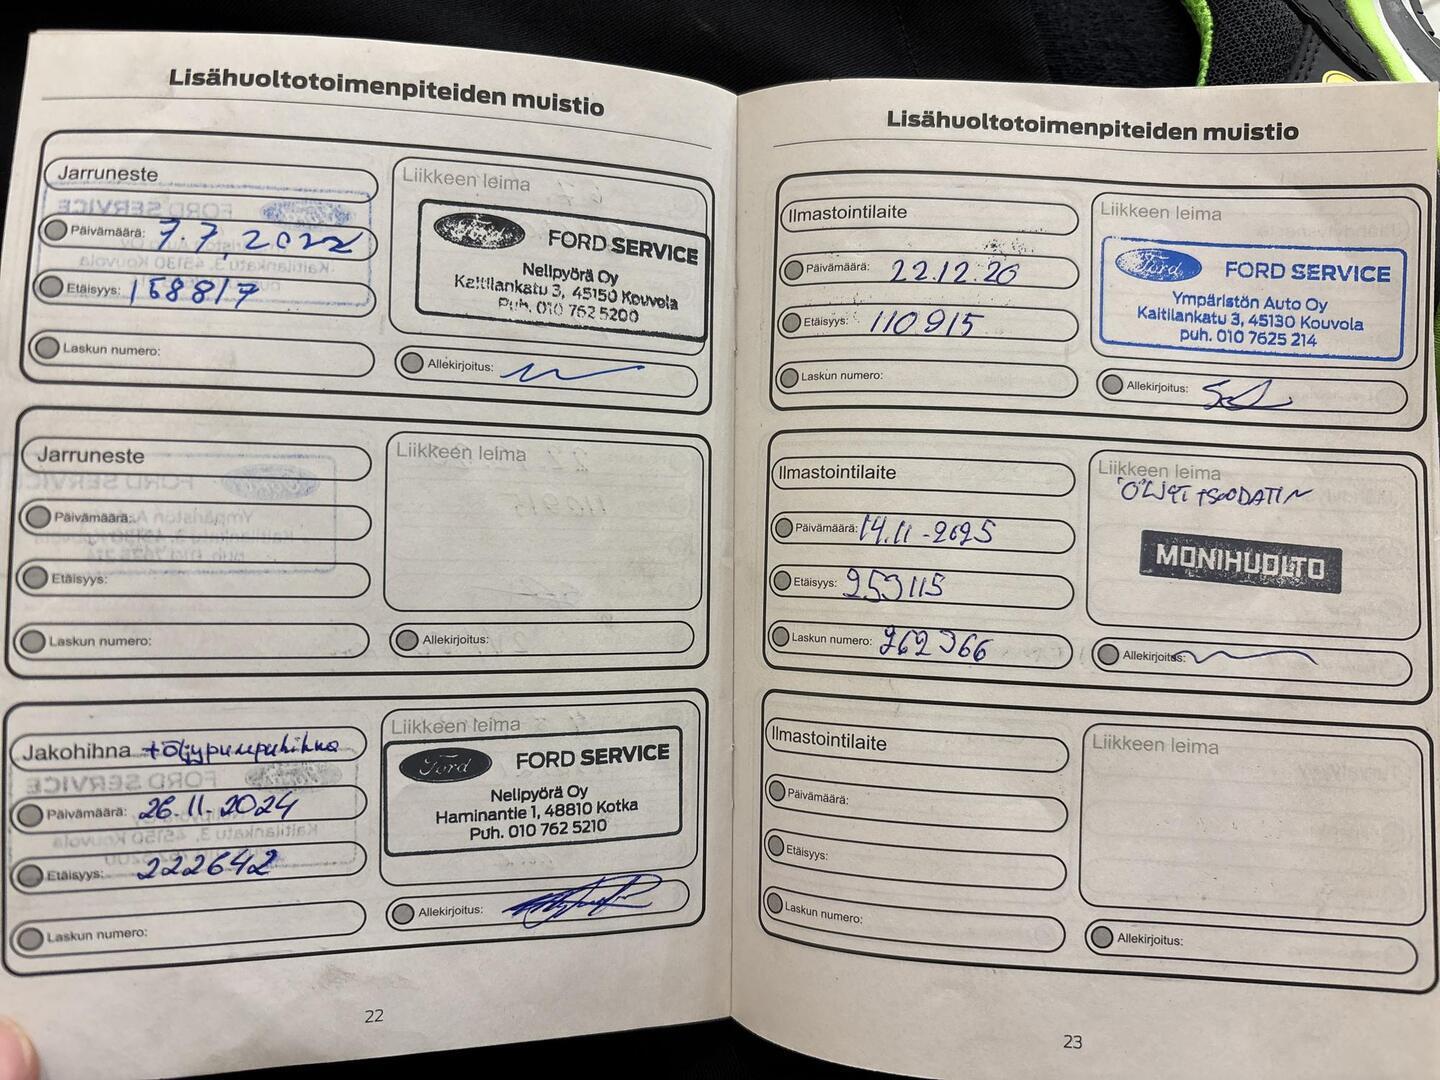 Lisähuoltotoimenpiteiden muistio
Jarruneste
Päivämäärä: 7.7.2022
Etäisyys: 158817
Laskun numero:
Liikkeen leima
Ford FORD SERVICE
Nelipyörä Oy
Kaitilankatu 3, 45150 Kouvola
Puh. 010 762 5200
Allekirjoitus:
Jarruneste
Päivämäärä:
Etäisyys:
Laskun numero:
Liikkeen leima
Allekirjoitus:
Jakohihna +öljypumpuhihna
Päivämäärä: 26.11.2024
Etäisyys: 222642
Laskun numero:
Liikkeen leima
Ford FORD SERVICE
Nelipyörä Oy
Haminantie 1, 48810 Kotka
Puh. 010 762 5210
Allekirjoitus:
22
Lisähuoltotoimenpiteiden muistio
Ilmastointilaite
Päivämäärä: 22.12.20
Etäisyys: 110915
Laskun numero:
Liikkeen leima
Ford FORD SERVICE
Ympäristön Auto Oy
Kaitilankatu 3, 45130 Kouvola
puh. 010 7625 214
Allekirjoitus:
Ilmastointilaite
Päivämäärä: 14.11-2025
Etäisyys: 253115
Laskun numero: 262366
Liikkeen leima
ÖLJYT+SUODATIN
MONIHUOLTO
Allekirjoitus:
Ilmastointilaite
Päivämäärä:
Etäisyys:
Laskun numero:
Liikkeen leima
Allekirjoitus:
23